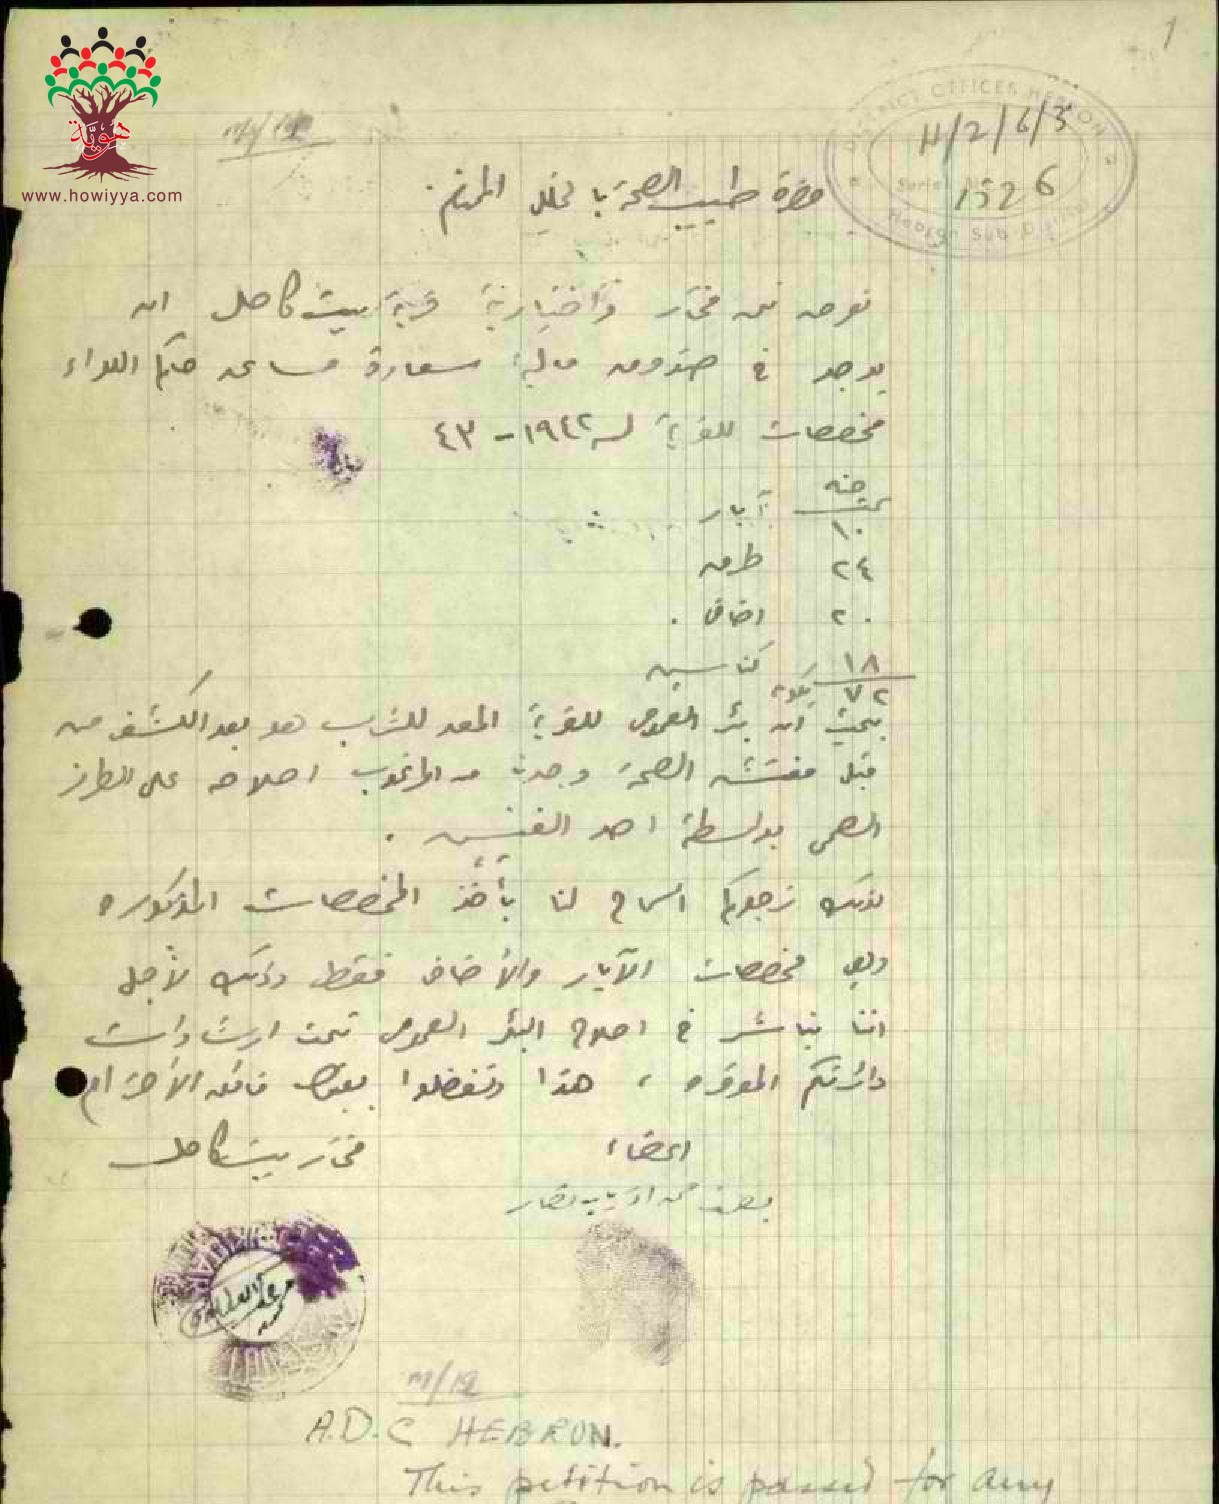 1
هوية
www.howiyya.com
DISTRICT OFFICES HEBRON
H/2/6/3
Serial No.
1526
Hebron Sub-District
حضرة طبيب الصحة بالخليل المحترم.
نعرض نحن مختار واختيارية قرية بيت كاحل ان
يوجد في صندوق مالية سعادة مساعد حاكم اللواء
مخصصات للقرية لسنة ١٩٤٢ - ٤٣
جنيه
١٠ آبار
٢٤ طرق
٢٠ اضافي .
١٨ كناسين
٧٢
بحيث ان بئر العمومي للقرية المعد للشرب هو بعد الكشف من
قبل مفتش الصحة وجدت من المرغوب اصلاحه على الطراز
الصحي بواسطة احد الفنيين .
لذلك نرجوكم السماح لنا بأخذ المخصصات المذكوره
وهي مخصصات الآبار والأضافي فقط وذلك لأجل
اننا نباشر في اصلاح البئر العمومي تحت ارشادات
دائرتكم الموقره ، هذا وتفضلوا بقبول فائق الأحترام
اعضاء
مختار بيت كاحل
بصمة
M/12
A.D.C HEBRON.
This petition is passed for any